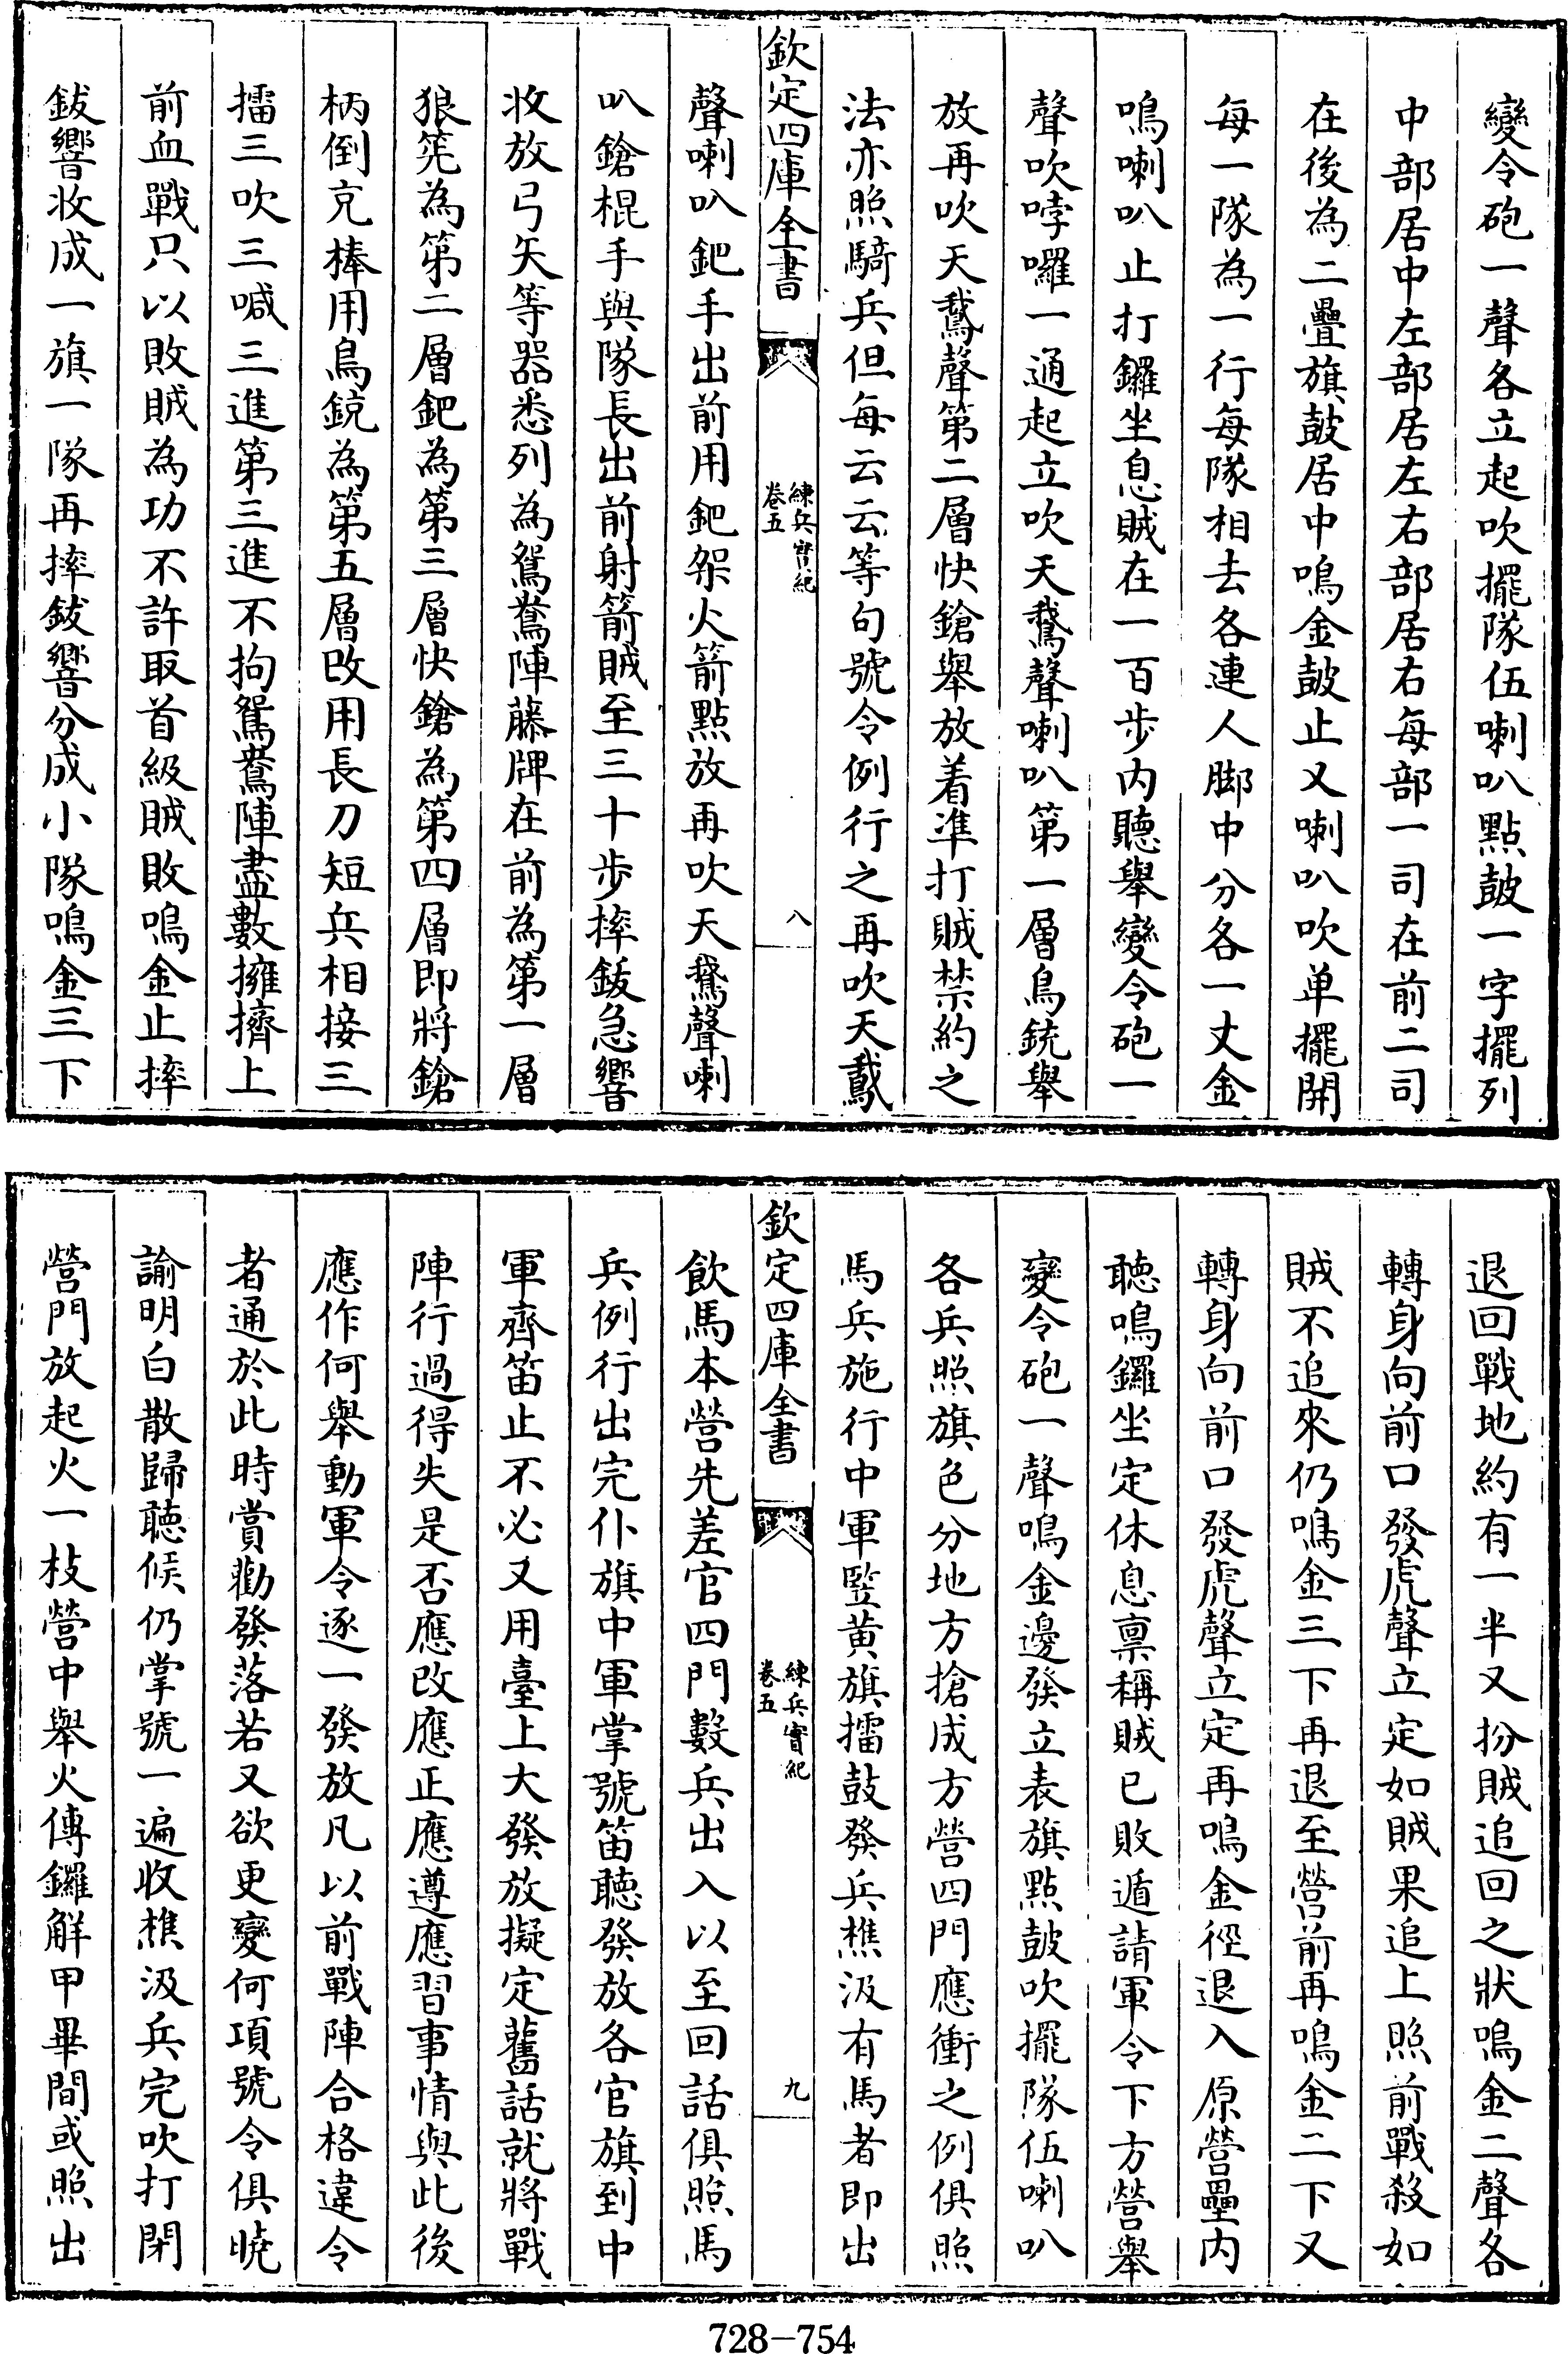 變令砲一聲各立起吹擺隊伍喇叭點鼓一字擺列
中部居中左部居左右部居右每部一司在前二司
在後為二疊旗鼓居中鳴金鼓止又喇叭吹单擺開
每一隊為一行每隊相去各連人脚中分各一丈金
鳴喇叭止打鑼坐息賊在一百步内聽舉變令砲一
聲吹哱囉一通起立吹天鵞聲喇叭第一層鳥銃舉
放再吹天鵞聲第二層快鎗舉放着準打賊禁約之
法亦照騎兵但每云云等句號令例行之再吹天鵞
欽定四庫全書
練兵實紀
卷五
八
聲喇叭鈀手出前用鈀架火箭點放再吹天鵞聲喇
叭鎗棍手與隊長出前射箭賊至三十步摔鈸急響
收放弓矢等器悉列為鴛鴦陣藤牌在前為第一層
狼筅為第二層鈀為第三層快鎗為第四層即將鎗
柄倒克棒用鳥銃為第五層改用長刀短兵相接三
擂三吹三喊三進第三進不拘鴛鴦陣盡數擁擠上
前血戰只以敗賊為功不許取首級賊敗鳴金止摔
鈸響收成一旗一隊再摔鈸響分成小隊鳴金三下
退回戰地約有一半又扮賊追回之狀鳴金二聲各
轉身向前口發虎聲立定如賊果追上照前戰殺如
賊不追來仍鳴金三下再退至營前再鳴金二下又
轉身向前口發虎聲立定再鳴金徑退入原營壘内
聽鳴鑼坐定休息稟稱賊已敗遁請軍令下方營舉
變令砲一聲鳴金邊發立表旗點鼓吹擺隊伍喇叭
各兵照旗色分地方搶成方營四門應衝之例俱照
馬兵施行中軍竪黄旗擂鼓發兵樵汲有馬者即出
欽定四庫全書
練兵實紀
卷五
九
飲馬本營先差官四門數兵出入以至回話俱照馬
兵例行出完仆旗中軍掌號笛聽發放各官旗到中
軍齊笛止不必又用臺上大發放擬定舊話就將戰
陣行過得失是否應改應正應遵應習事情與此後
應作何舉動軍令逐一發放凡以前戰陣合格違令
者通於此時賞勸發落若又欲更變何項號令俱曉
諭明白散歸聽候仍掌號一遍收樵汲兵完吹打閉
營門放起火一枝營中舉火傳鑼觧甲畢間或照出
728-754